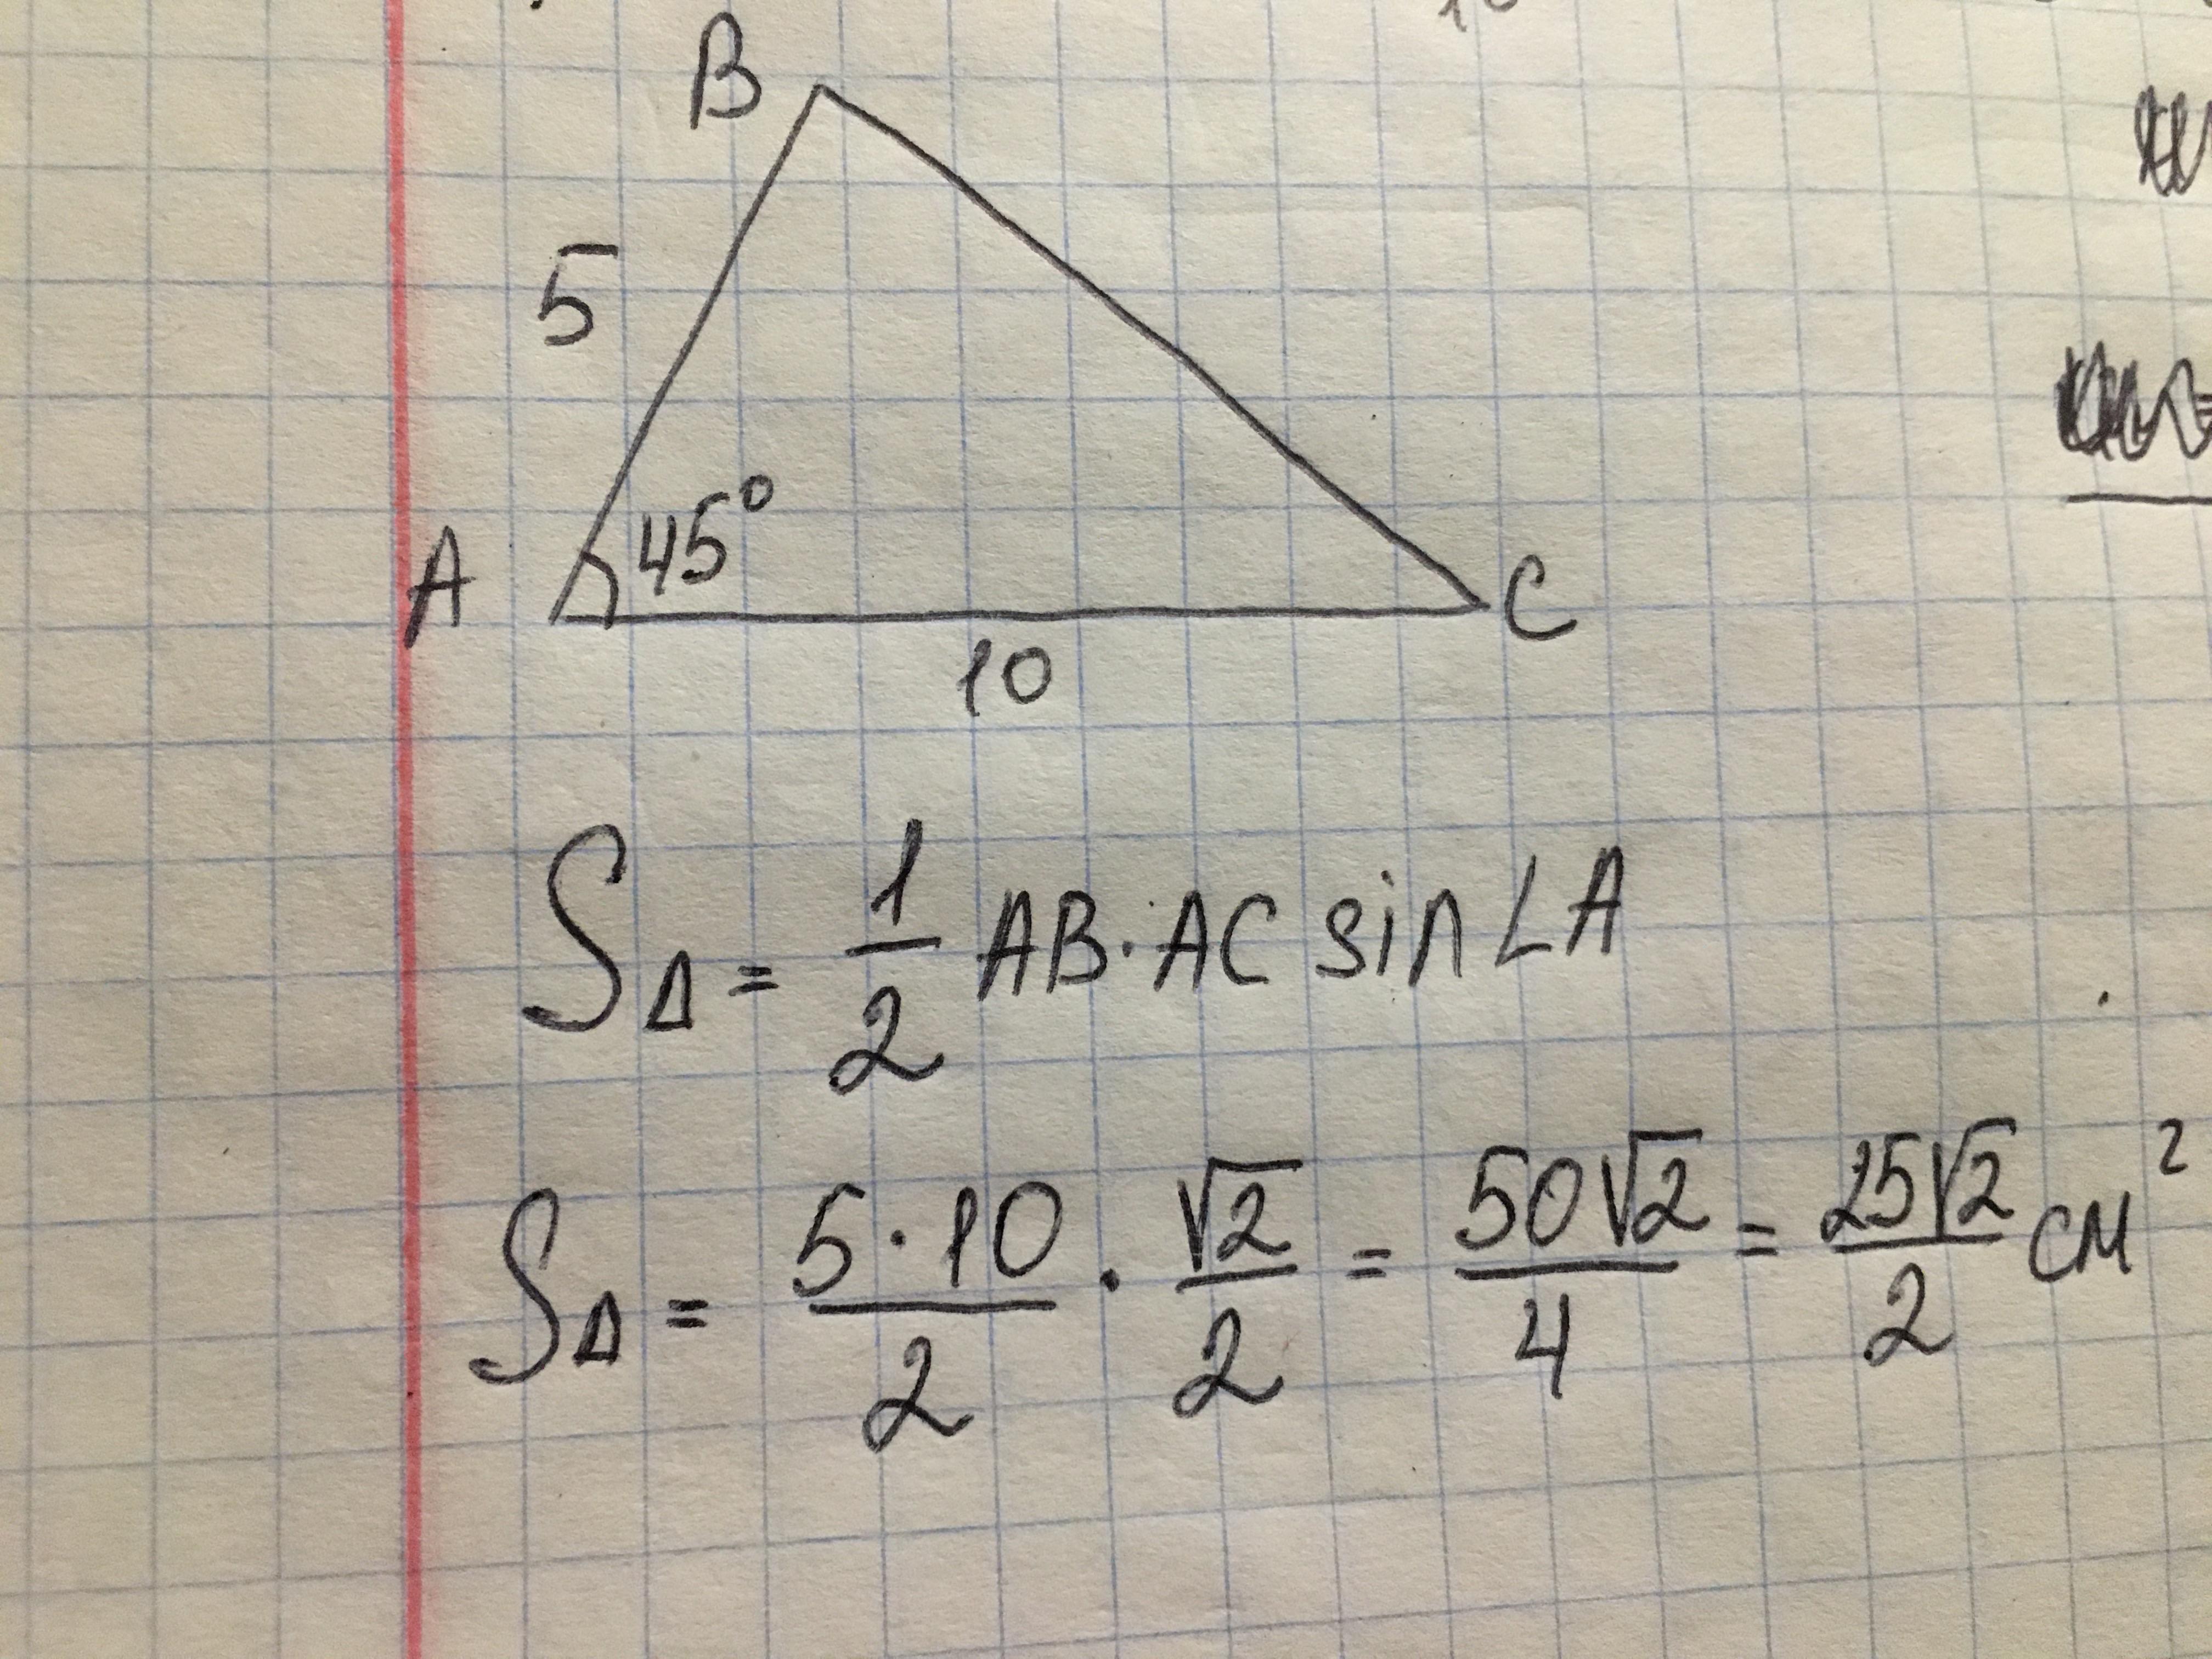 B
5
A 45° C
10
S△ = 1/2 AB · AC sin ∠A
S△ = 5·10/2 · √2/2 = 50√2/4 = 25√2/2 см²